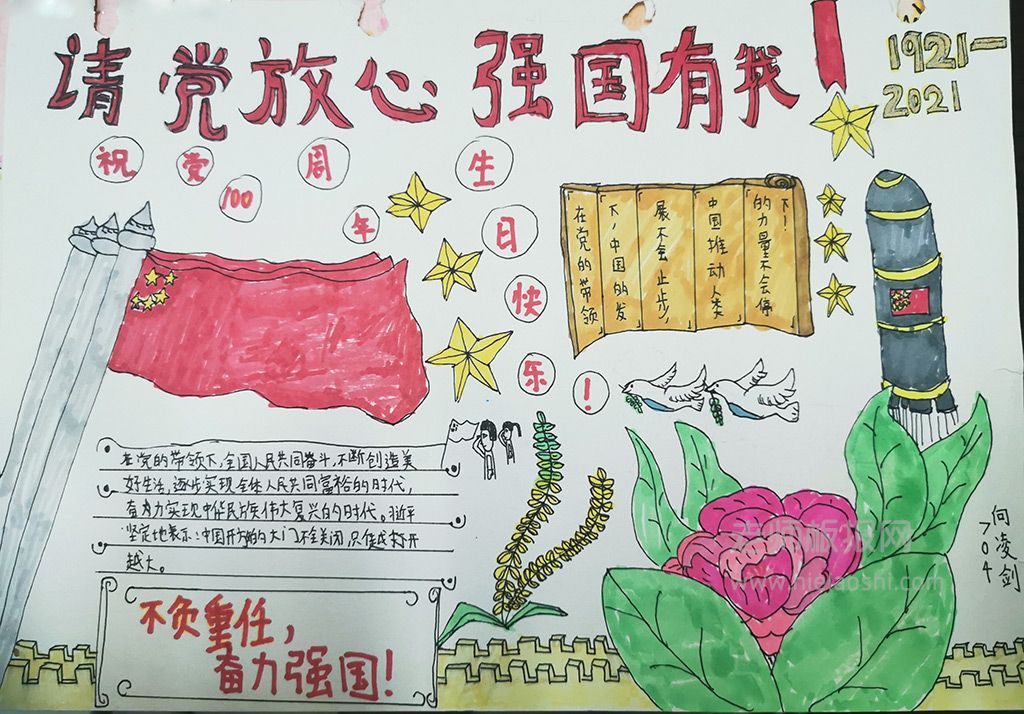 请党放心 强国有我!
1921—
2021
祝党100周年生日快乐!
在党的带领
下,中国的发
展不会止步,
中国推动人类
的力量不会停
下!
在党的带领下,全国人民共同奋斗,不断创造美
好生活,逐步实现全体人民共同富裕的时代,
奋力实现中华民族伟大复兴的时代。习近平
坚定地表示:中国开放的大门不会关闭,只会越打开
越大。
不负重任,
奋力强国!
向凌剑
704
老师板报网